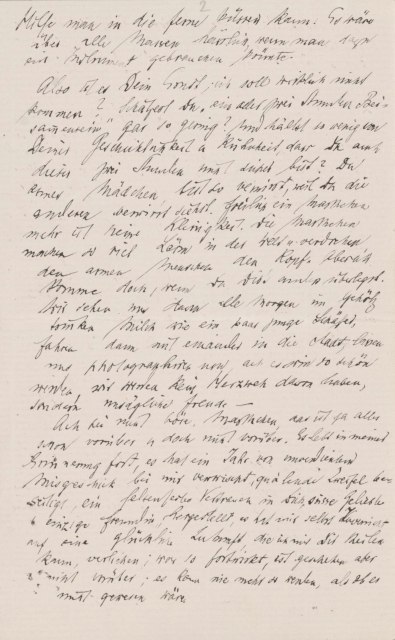 2
Hilfe man in die ferne küssen kann. Es wäre
über alle Massen herrlich, wenn man dazu
ein Instrument gebrauchen könnte.
Also ist es Dein Ernst, ich soll wirklich nicht
kommen? Schätzest Du ein oder zwei Stunden Bei-
sammensein gar so gering? Und hältst so wenig von
Deiner Geschicklichkeit u Kühnheit, dass Du auch
dieser zwei Stunden nicht sicher bist? Du
armes Mädchen bist so verwirrt, weil Du die
anderen verwirrt siehst. Freilich ein
mehr ist keine Kleinigkeit. Die
machen so viel Lärm in der Welt u verdrehen
den armen Menschen den Kopf. Überall
Komme doch, wenn Du Dirs anders überlegst.
Wir sehen uns dann alle Morgen im Gehölz
trinken Milch wie ein paar junge
fahren dann mit einander in die Stadt, lassen
uns photographieren usw, all es wird so schön
werden, wir werden kein Herzweh davon haben,
sondern unsägliche Freude —
Ach sei nicht böse, das ist ja alles
nun vorüber u doch nicht vorüber. Es lebt in meiner
Erinnerung fort, es hat ein Jahr von unverdientem
Missgeschick bei mir verwischt, quälende Zweifel be-
seitigt, ein felsenfestes Vertrauen in Dich, süsse Geliebte
u einzige Freundin hergestellt, es hat mir selbst Zuversicht
auf eine glückliche Zukunft, die ich mit Dir theilen
kann, verliehen; was so fortwirkt, ist geschehen aber
nicht vorüber; es kann nie mehr so werden, als ob es
nicht gewesen wäre